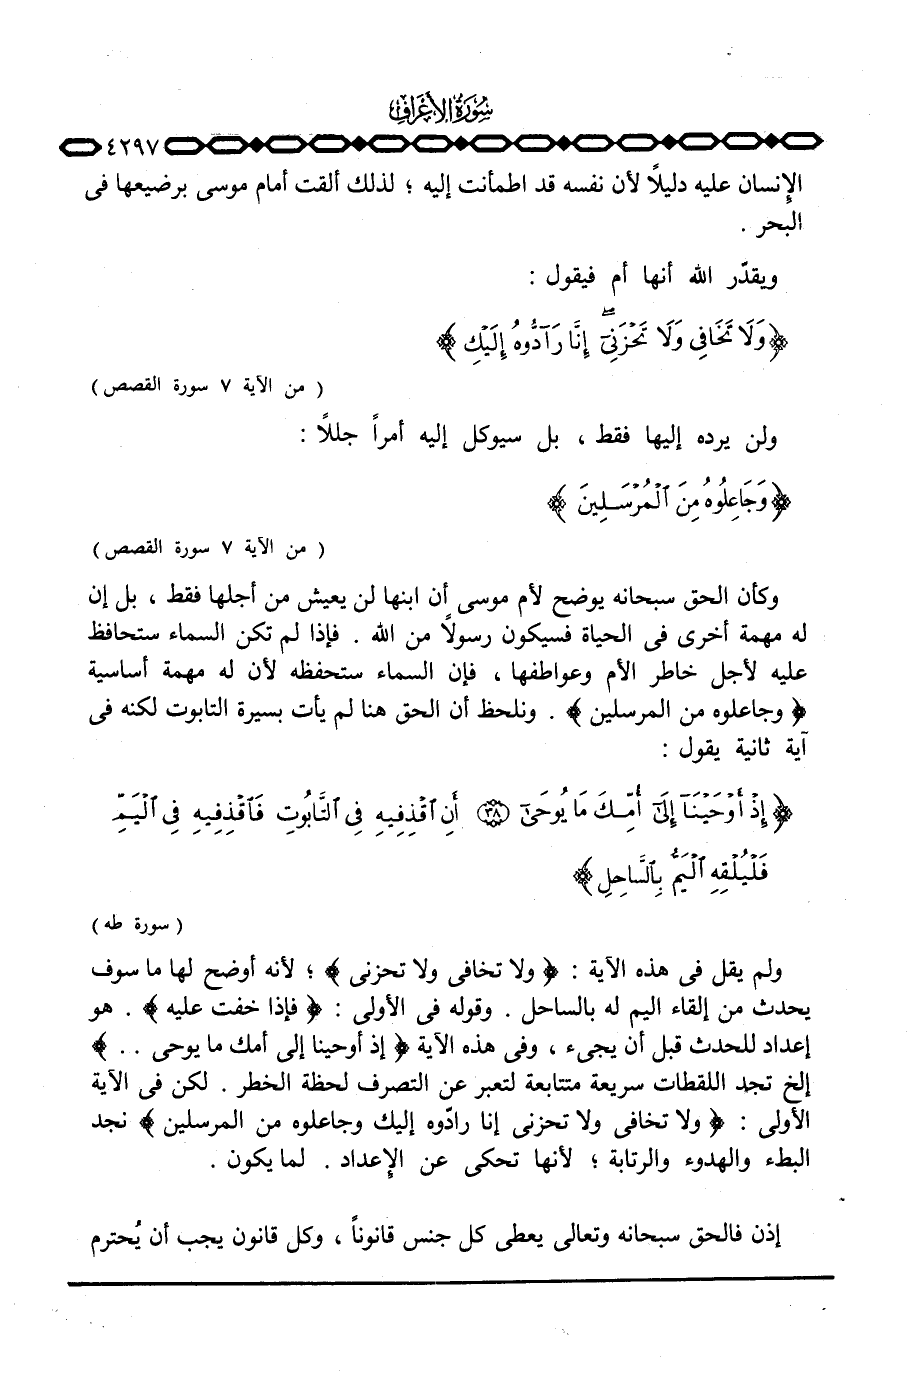 سُورَةُ الأَعْرَافِ
٤٢٩٧
الإنسان عليه دليلاً لأن نفسه قد اطمأنت إليه ؛ لذلك ألقت أمام موسى برضيعها فى
البحر .
ويقدّر الله أنها أم فيقول :
﴿ وَلَا تَخَافِى وَلَا تَحْزَنِىٓ ۖ إِنَّا رَآدُّوهُ إِلَيْكِ ﴾
( من الآية ٧ سورة القصص )
ولن يرده إليها فقط ، بل سيوكل إليه أمراً جللاً :
﴿ وَجَاعِلُوهُ مِنَ ٱلْمُرْسَلِينَ ﴾
( من الآية ٧ سورة القصص )
وكأن الحق سبحانه يوضح لأم موسى أن ابنها لن يعيش من أجلها فقط ، بل إن
له مهمة أخرى فى الحياة فسيكون رسولاً من الله . فإذا لم تكن السماء ستحافظ
عليه لأجل خاطر الأم وعواطفها ، فإن السماء ستحفظه لأن له مهمة أساسية
﴿ وجاعلوه من المرسلين ﴾ . ونلحظ أن الحق هنا لم يأت بسيرة التابوت لكنه فى
آية ثانية يقول :
﴿ إِذْ أَوْحَيْنَآ إِلَىٰٓ أُمِّكَ مَا يُوحَىٰٓ ﴿٣٨﴾ أَنِ ٱقْذِفِيهِ فِى ٱلتَّابُوتِ فَٱقْذِفِيهِ فِى ٱلْيَمِّ
فَلْيُلْقِهِ ٱلْيَمُّ بِٱلسَّاحِلِ ﴾
( سورة طه )
ولم يقل فى هذه الآية : ﴿ ولا تخافى ولا تحزنى ﴾ ؛ لأنه أوضح لها ما سوف
يحدث من إلقاء اليم له بالساحل . وقوله فى الأولى : ﴿ فإذا خفت عليه ﴾ . هو
إعداد للحدث قبل أن يجىء ، وفى هذه الآية ﴿ إذ أوحينا إلى أمك ما يوحى . . ﴾
إلخ تجد اللقطات سريعة متتابعة لتعبر عن التصرف لحظة الخطر . لكن فى الآية
الأولى : ﴿ ولا تخافى ولا تحزنى إنا رادّوه إليك وجاعلوه من المرسلين ﴾ نجد
البطء والهدوء والرتابة ؛ لأنها تحكى عن الإعداد . لما يكون .
إذن فالحق سبحانه وتعالى يعطى كل جنس قانوناً ، وكل قانون يجب أن يُحترم